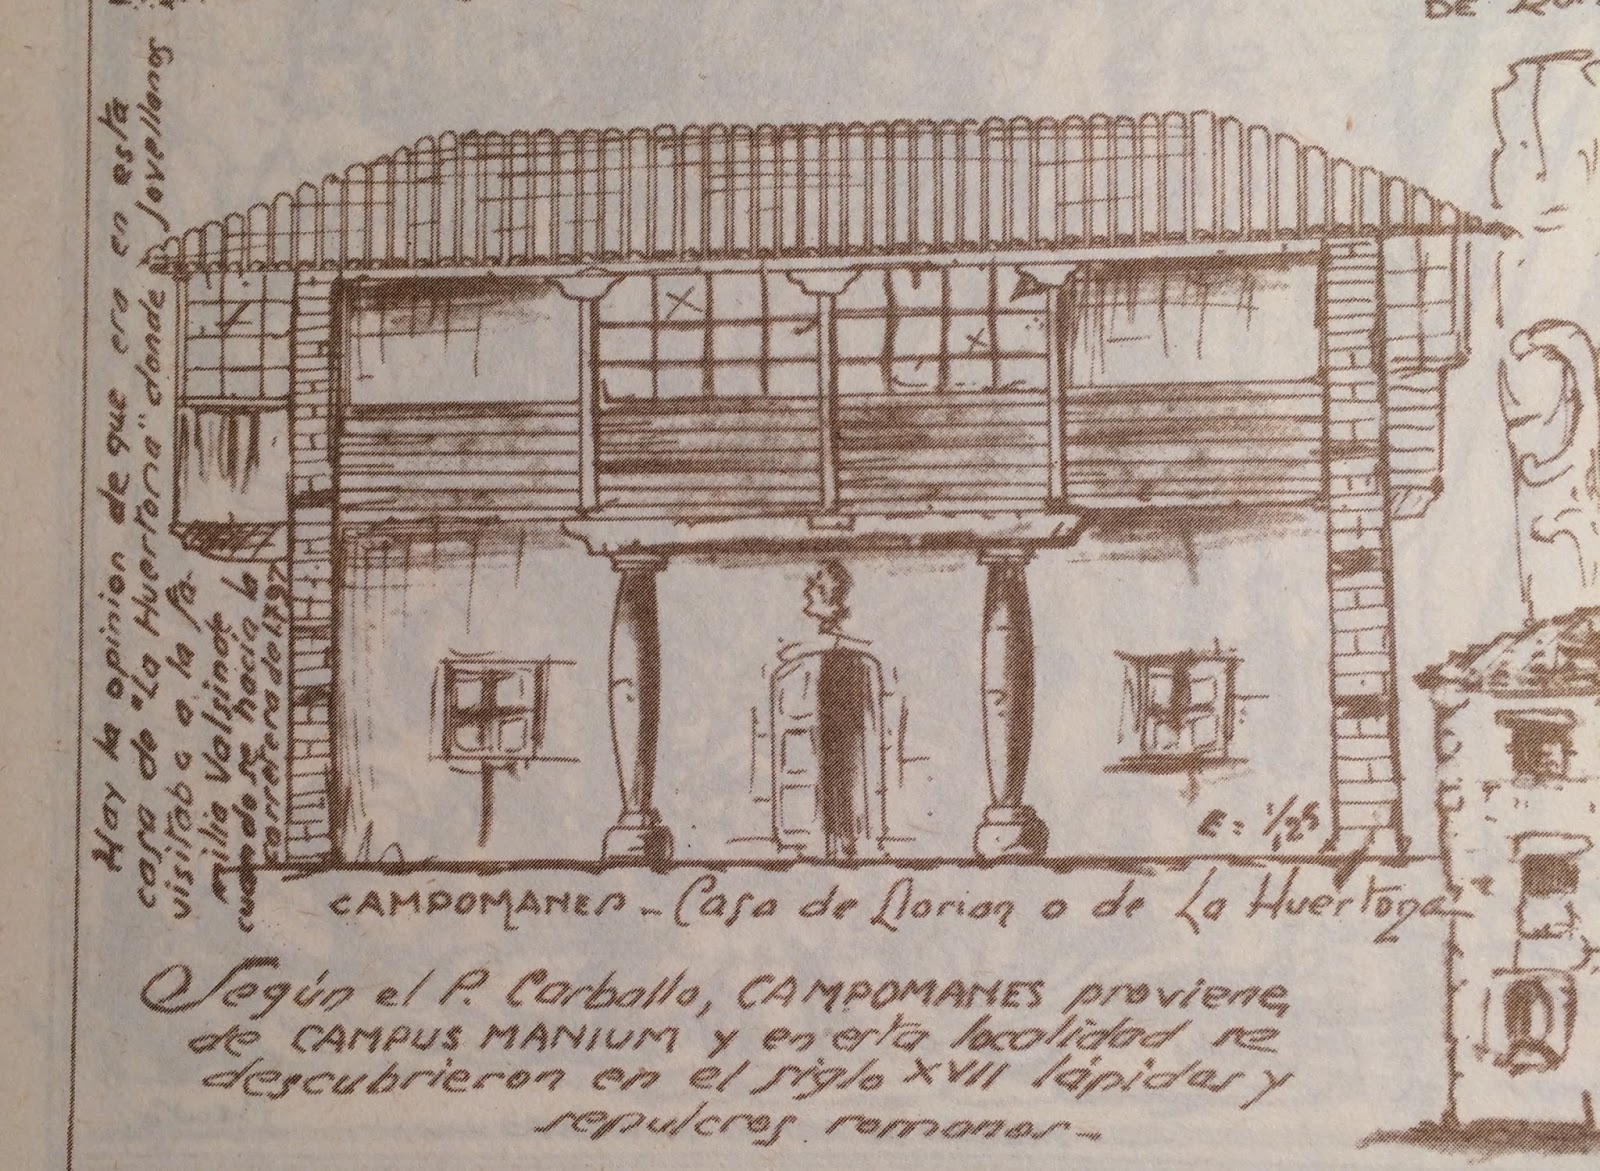 DE
Hay la opinion de que era en esta
casa de "La Huertona" donde Jovellanos
visitaba a la fa-
milia Valsinde
cuando se hacia la
carretera del 1797
E = 1/125
CAMPOMANES - Casa de Llorian o de La Huertona
Según el P. Carballo, CAMPOMANES proviene,
de CAMPUS MANIUM y en esta localidad se
descubrieron en el siglo XVII lápidas y
sepulcros romanos -